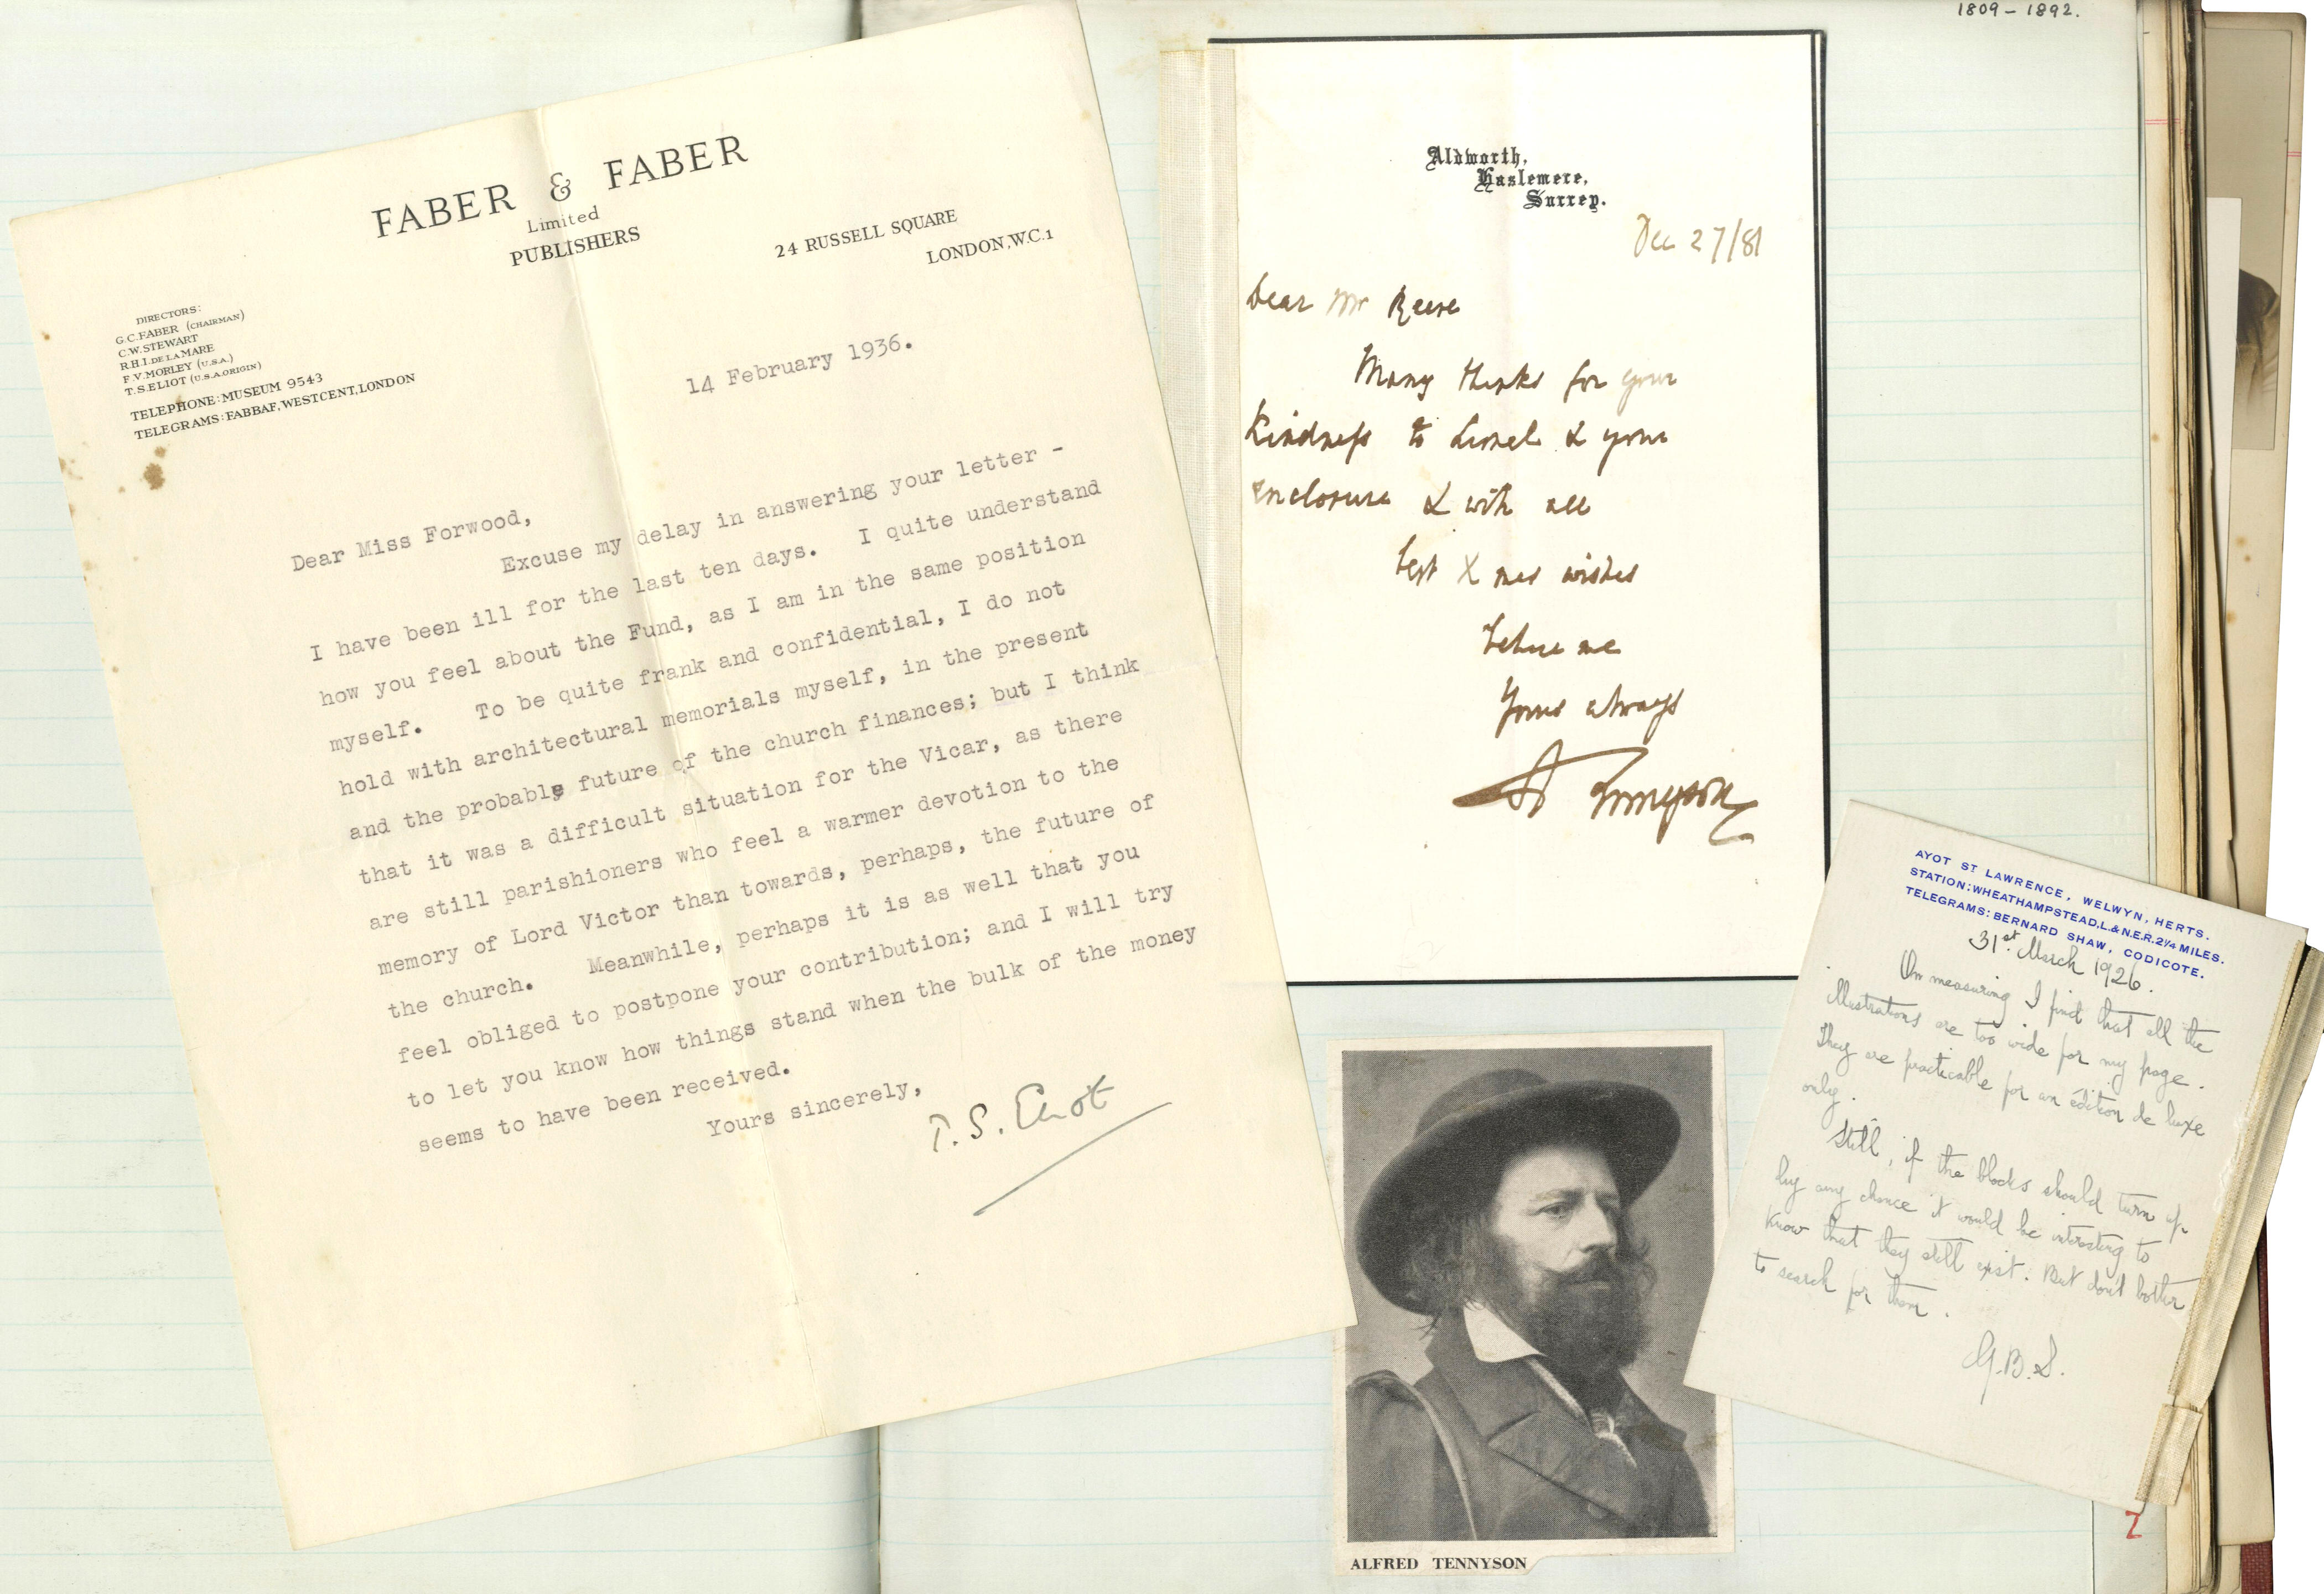 FABER & FABER
Limited
PUBLISHERS
24 RUSSELL SQUARE
LONDON, W.C.1
DIRECTORS:
G.C.FABER (CHAIRMAN)
C.W.STEWART
R.H.I.DE LA MARE
F.V.MORLEY (U.S.A.)
T.S.ELIOT (U.S.A.ORIGIN)
TELEPHONE: MUSEUM 9543
TELEGRAMS: FABBAF, WESTCENT, LONDON
14 February 1936.
Dear Miss Forwood,
Excuse my delay in answering your letter -
I have been ill for the last ten days. I quite understand
how you feel about the Fund, as I am in the same position
myself. To be quite frank and confidential, I do not
hold with architectural memorials myself, in the present
and the probable future of the church finances; but I think
that it was a difficult situation for the Vicar, as there
are still parishioners who feel a warmer devotion to the
memory of Lord Victor than towards, perhaps, the future of
the church. Meanwhile, perhaps it is as well that you
feel obliged to postpone your contribution; and I will try
to let you know how things stand when the bulk of the money
seems to have been received.
Yours sincerely,
T. S. Eliot
1809 - 1892.
Aldworth,
Haslemere,
Surrey.
Dec 27/81
Dear Mr Reeve
Many thanks for your
kindness to Lionel & your
enclosure & with all
best Xmas wishes
believe me
Yours always
A Tennyson
ALFRED TENNYSON
AYOT ST LAWRENCE, WELWYN, HERTS.
STATION: WHEATHAMPSTEAD, L.& N.E.R. 2¼ MILES.
TELEGRAMS: BERNARD SHAW, CODICOTE.
31st March 1926.
On measuring I find that all the
illustrations are too wide for my page.
They are practicable for an édition de luxe
only.
Still, if the blocks should turn up
by any chance it would be interesting to
know that they still exist. But don't bother
to search for them.
G.B.S.